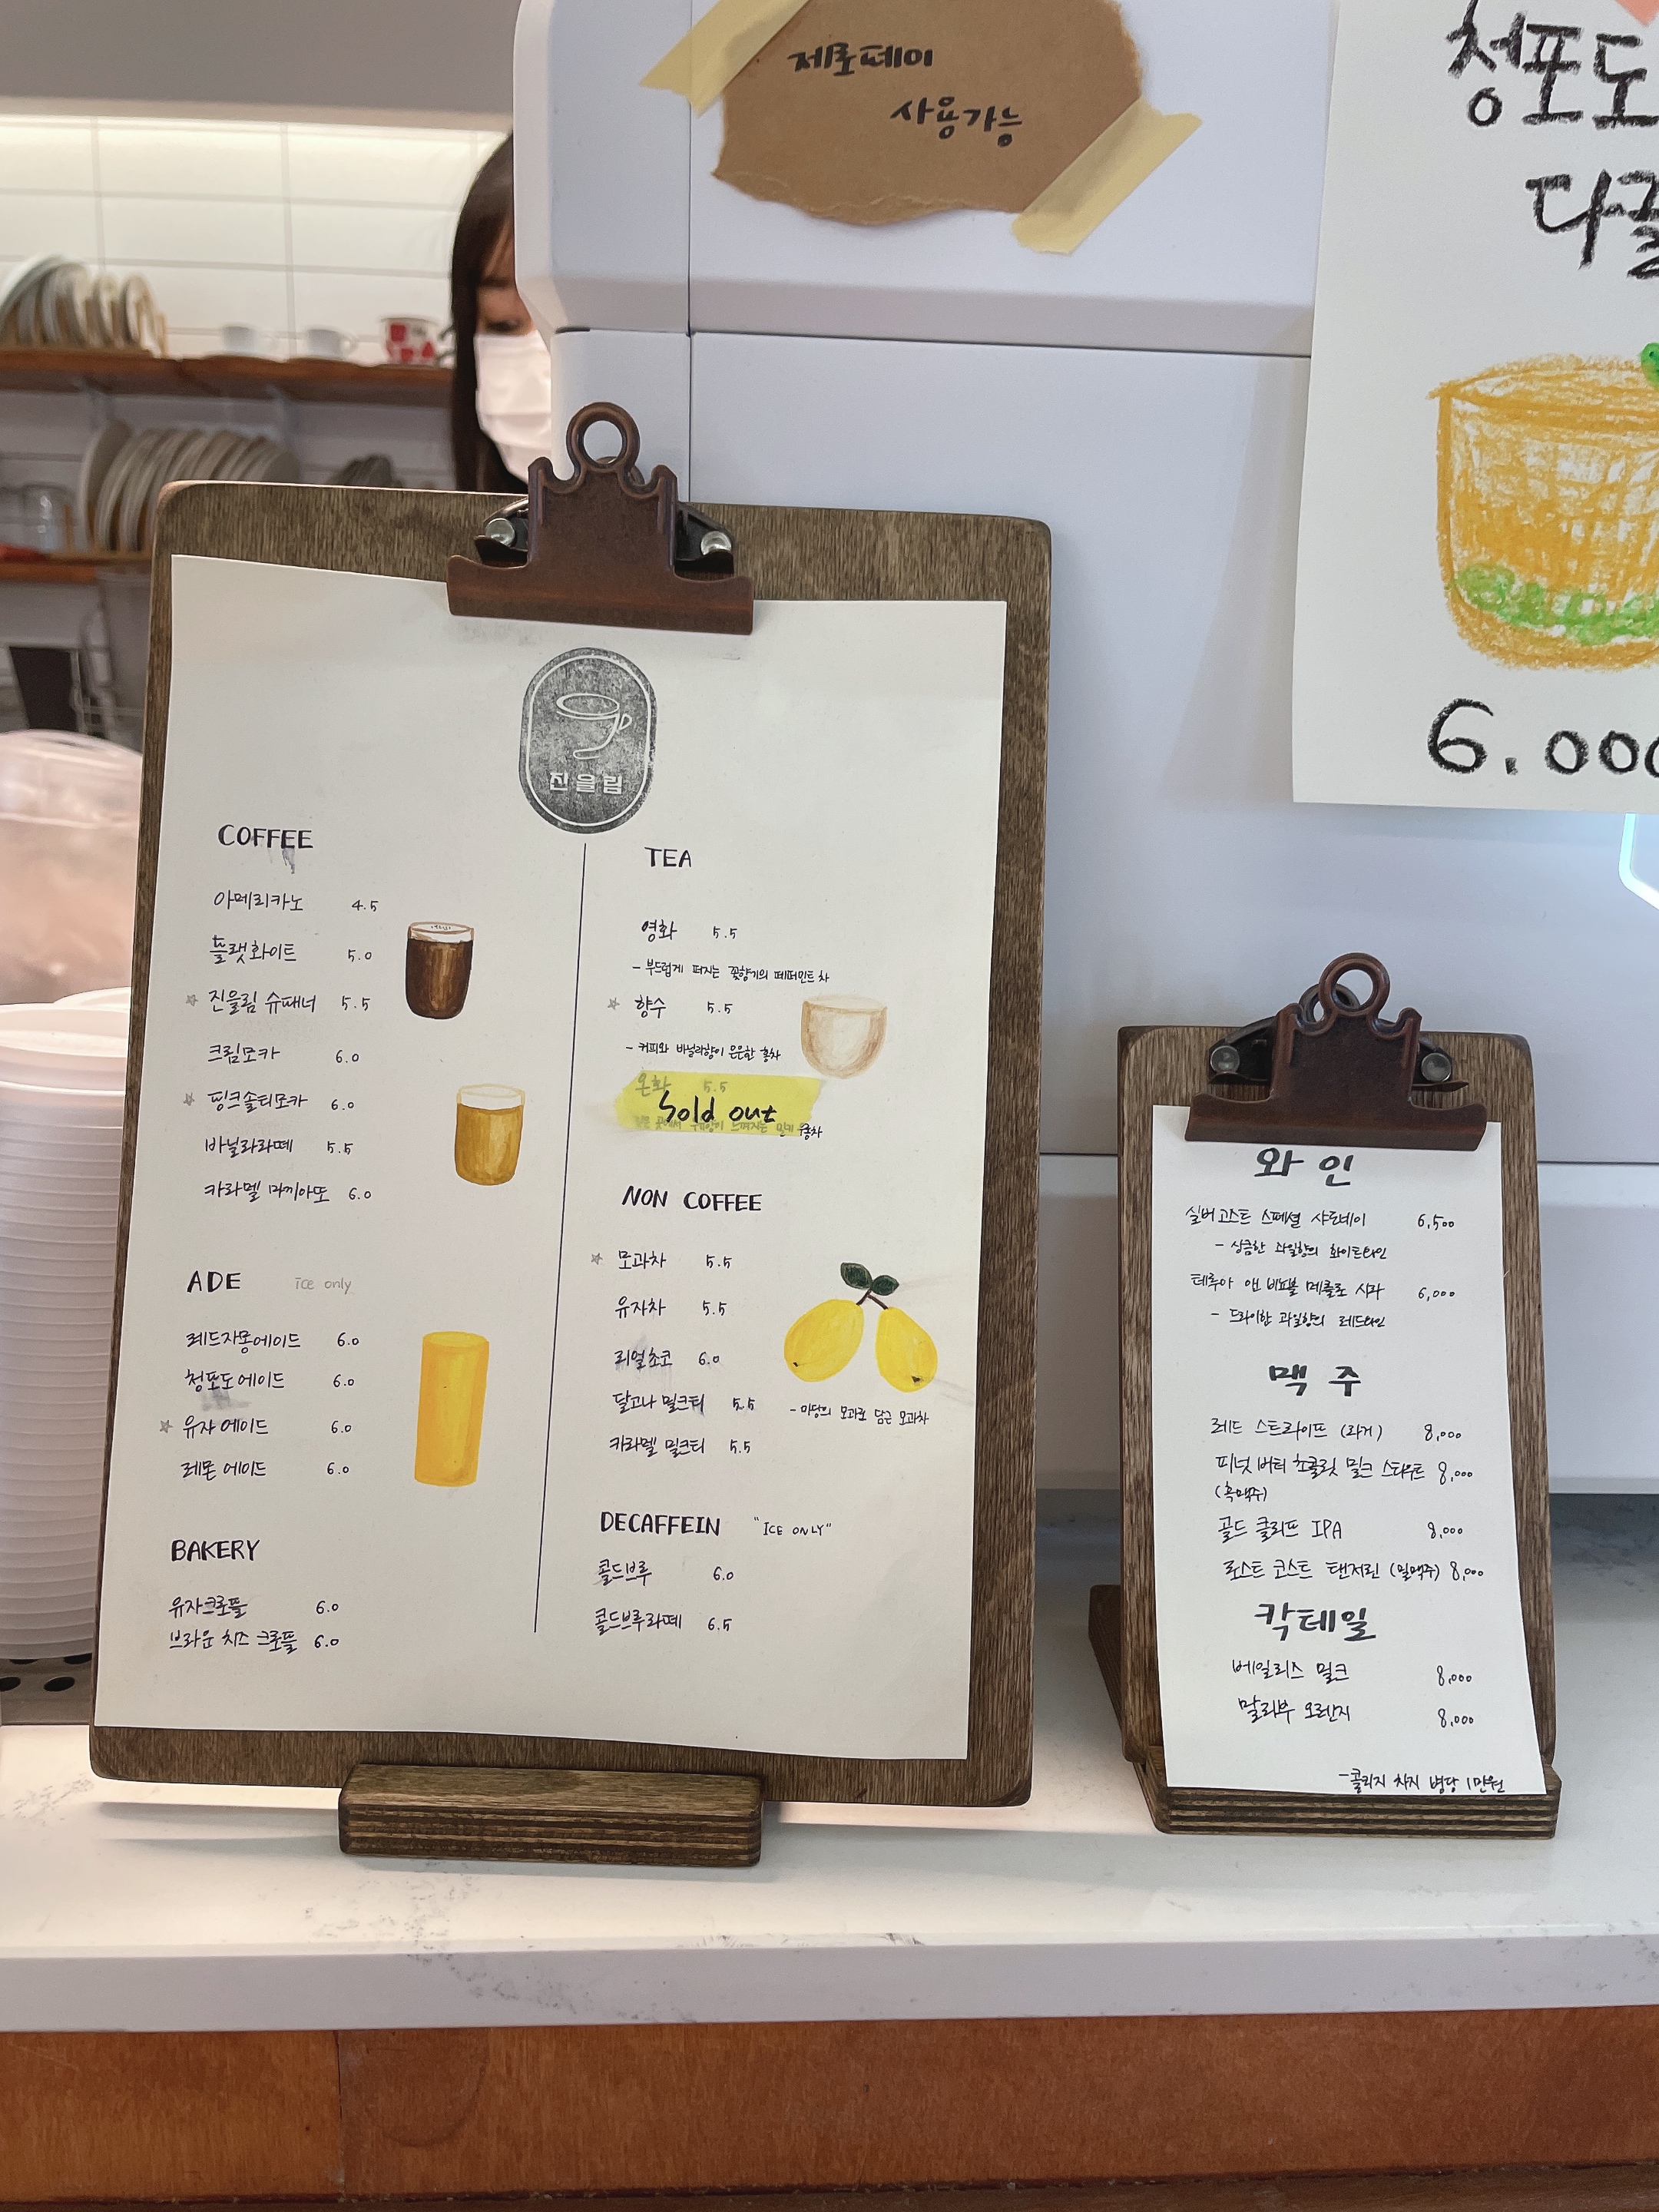 제로페이
사용가능
청포도
6.000
진을림
COFFEE
아메리카노 4.5
플랫화이트 5.0
☆ 진을림 슈패너 5.5
크림모카 6.0
☆ 핑크솔티모카 6.0
바닐라라떼 5.5
카라멜 마끼아또 6.0
ADE ice only
레드자몽에이드 6.0
청포도에이드 6.0
☆ 유자에이드 6.0
레몬에이드 6.0
BAKERY
유자크로플 6.0
브라운 치즈 크로플 6.0
TEA
영화 5.5
- 부드럽게 퍼지는 꽃향기의 페퍼민트 차
☆ 향수 5.5
- 커피와 바닐라향이 은은한 홍차
온화 5.5
Sold out
홍차
NON COFFEE
☆ 모과차 5.5
유자차 5.5
리얼초코 6.0
달고나 밀크티 5.5
카라멜 밀크티 5.5
- 마당의 모과로 담근 모과차
DECAFFEIN "ICE ONLY"
콜드브루 6.0
콜드브루라떼 6.5
와인
실버고스트 스페셜 샤르네이 6,500
- 상큼한 과일향의 화이트와인
테루아 앤 비표블 메를로 시라 6,000
- 드라이한 과일향의 레드와인
맥주
레드 스트라이프 (라거) 8,000
피넛 버터 초콜릿 밀크 스타우트 8,000
(흑맥주)
골드 클리프 IPA 8,000
로스트 코스트 탠저린 (밀맥주) 8,000
칵테일
베일리스 밀크 8,000
말리부 오렌지 8,000
- 콜키지 차지 병당 1만원